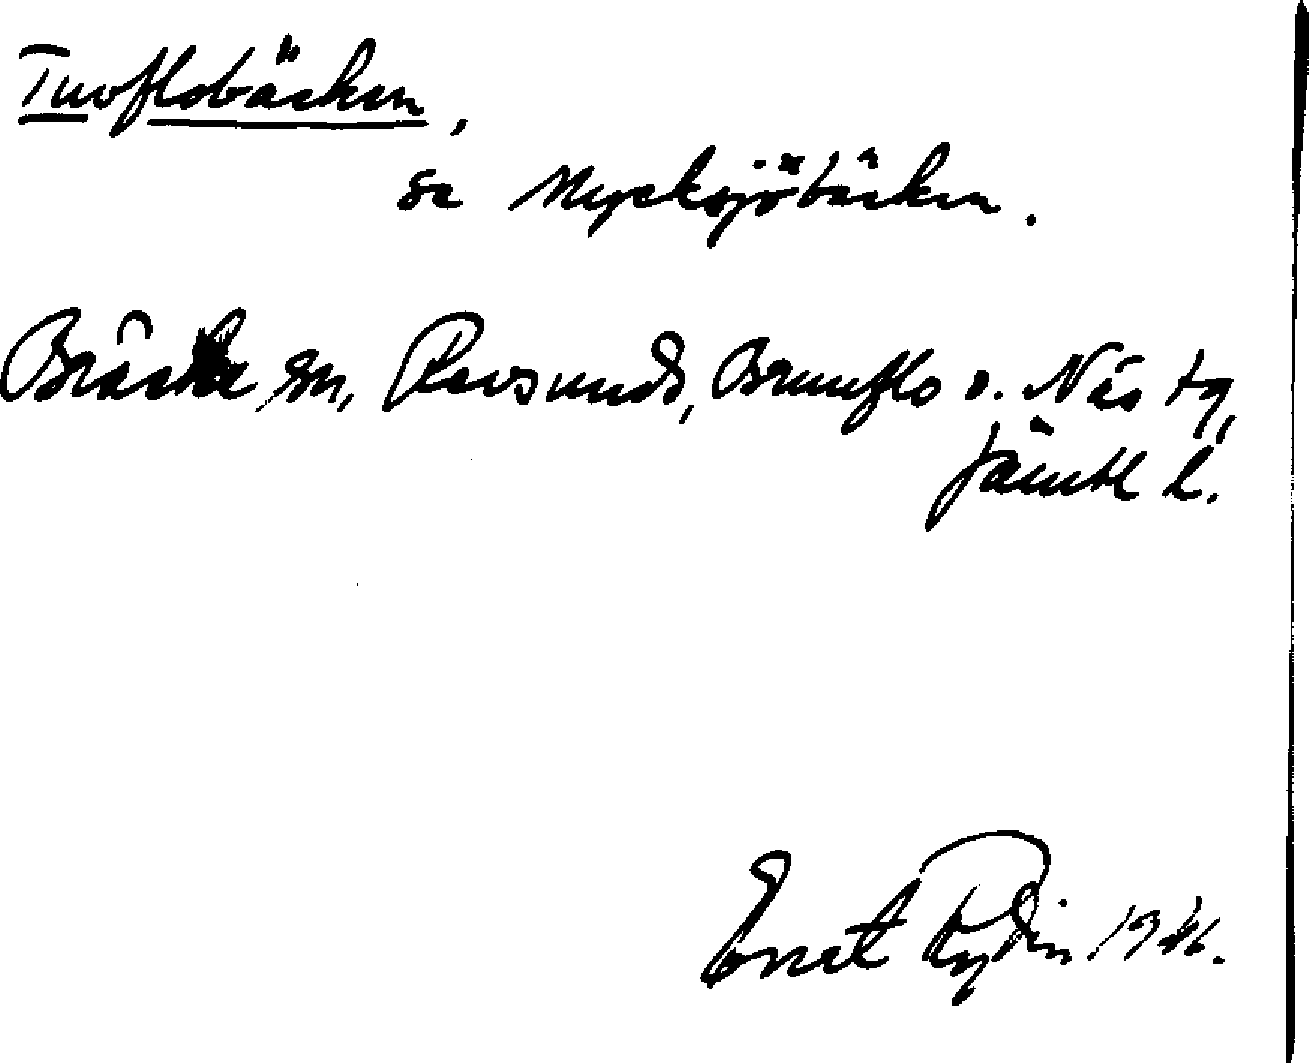 Tuvflobäcken,
se Mycksjöbäcken.
Bräcke sn, Revsunds, Brunflo o. Näs tg,
Jämtl l.
Ernst Rydin 1946.